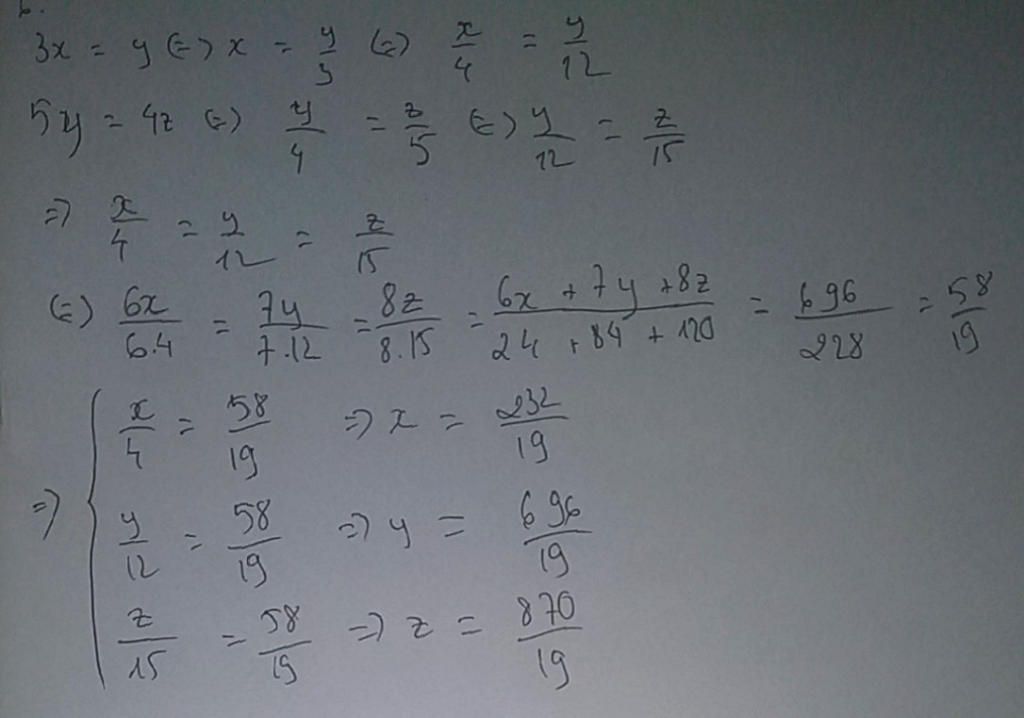 b.
3x = y <=> x = y/3 <=> x/4 = y/12
5y = 4z <=> y/4 = z/5 <=> y/12 = z/15
=> x/4 = y/12 = z/15
<=> 6x/6.4 = 7y/7.12 = 8z/8.15 = (6x + 7y + 8z)/(24 + 84 + 120) = 696/228 = 58/19
=> { x/4 = 58/19 => x = 232/19
y/12 = 58/19 => y = 696/19
z/15 = 58/19 => z = 870/19